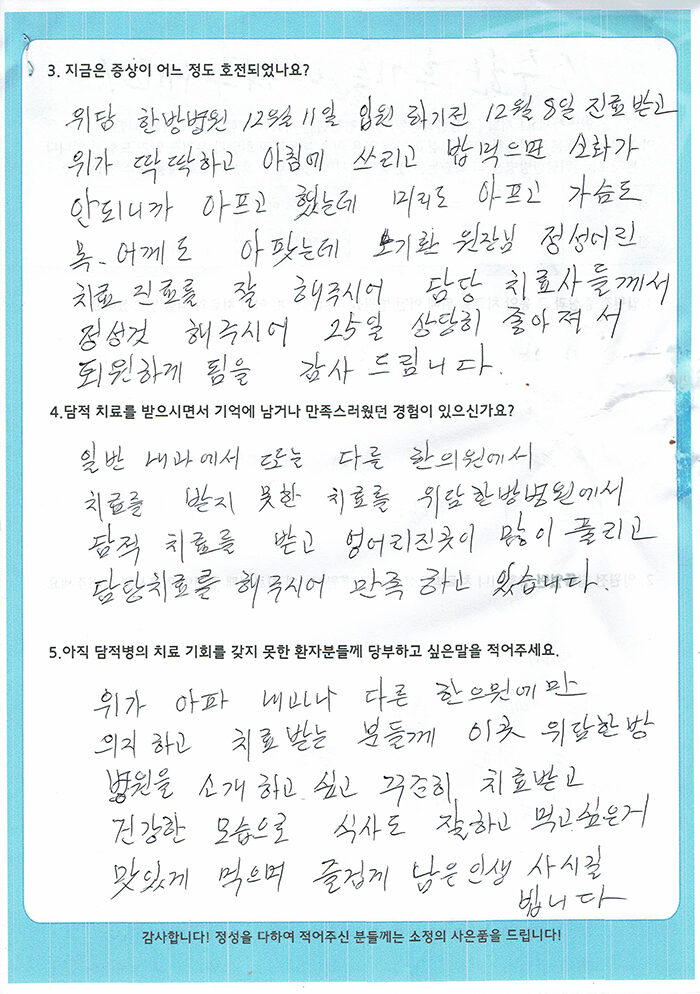 3. 지금은 증상이 어느 정도 호전되었나요?
위담 한방병원 12월 11일 입원 하기전 12월 8일 진료받고
위가 딱딱하고 아침에 쓰리고 밥먹으면 소화가
안되니까 아프고 했는데 머리도 아프고 가슴도
목. 어께도 아팟는데 노기환 원장님 정성어린
치료 진료를 잘 해주시어 담당 치료사들께서
정성것 해주시어 25일 상당히 좋아져서
퇴원하게 됨을 감사 드립니다.
4.담적 치료를 받으시면서 기억에 남거나 만족스러웠던 경험이 있으신가요?
일반 내과에서 또는 다른 한의원에서
치료를 받지 못한 치료를 위담한방병원에서
담적 치료를 받고 엉어리진곳이 많이 풀리고
담당치료를 해주시어 만족 하고 있습니다.
5.아직 담적병의 치료 기회를 갖지 못한 환자분들께 당부하고 싶은말을 적어주세요.
위가 아파 내과나 다른 한으원에만
의지 하고 치료 받는 분들께 이곳 위담한방
병원을 소개 하고 싶고 꾸준히 치료받고
건강한 모습으로 식사도 잘하고 먹고싶은거
맛있게 먹으며 즐겁게 남은인생 사시길
빕니다
감사합니다! 정성을 다하여 적어주신 분들께는 소정의 사은품을 드립니다!